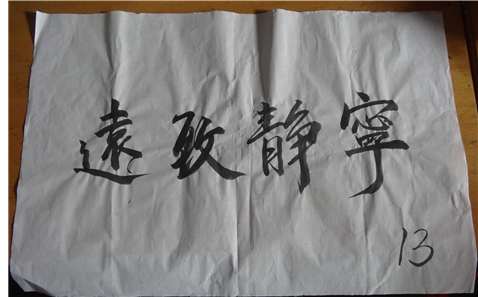 寧静致遠
13